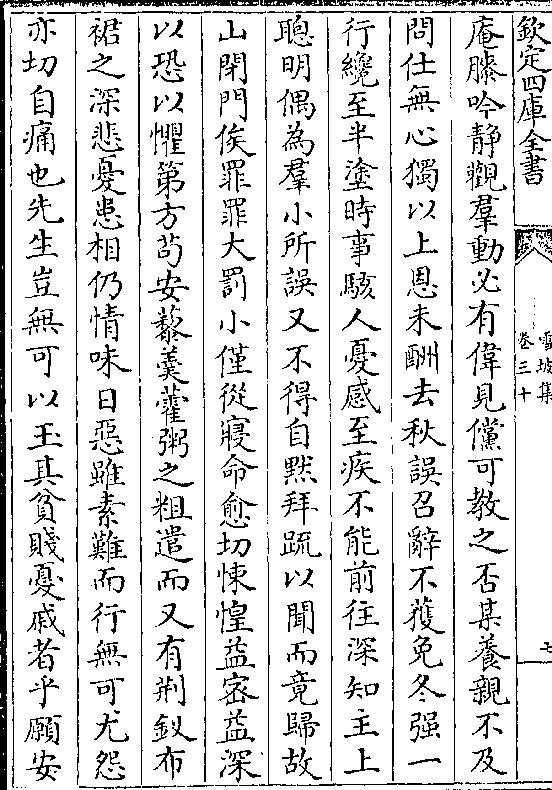 欽定四庫全書
雪坡集
卷三十
七
庵膝吟靜觀羣動必有偉見儻可教之否某養親不及
問仕無心獨以上恩未酬去秋誤召辭不獲免冬强一
行纔至半塗時事駭人憂感至疾不能前往深知主上
聰明偶為羣小所誤又不得自黙拜䟽以聞而竟歸故
山閉門俟罪罪大罰小僅從寢命愈切悚惶益宻益深
以恐以懼第方茍安藜羮藿粥之粗遣而又有荆釵布
裙之深悲憂患相仍情味日惡雖素難而行無可尤怨
亦切自痛也先生豈無可以玉其貧賤憂戚者乎願安